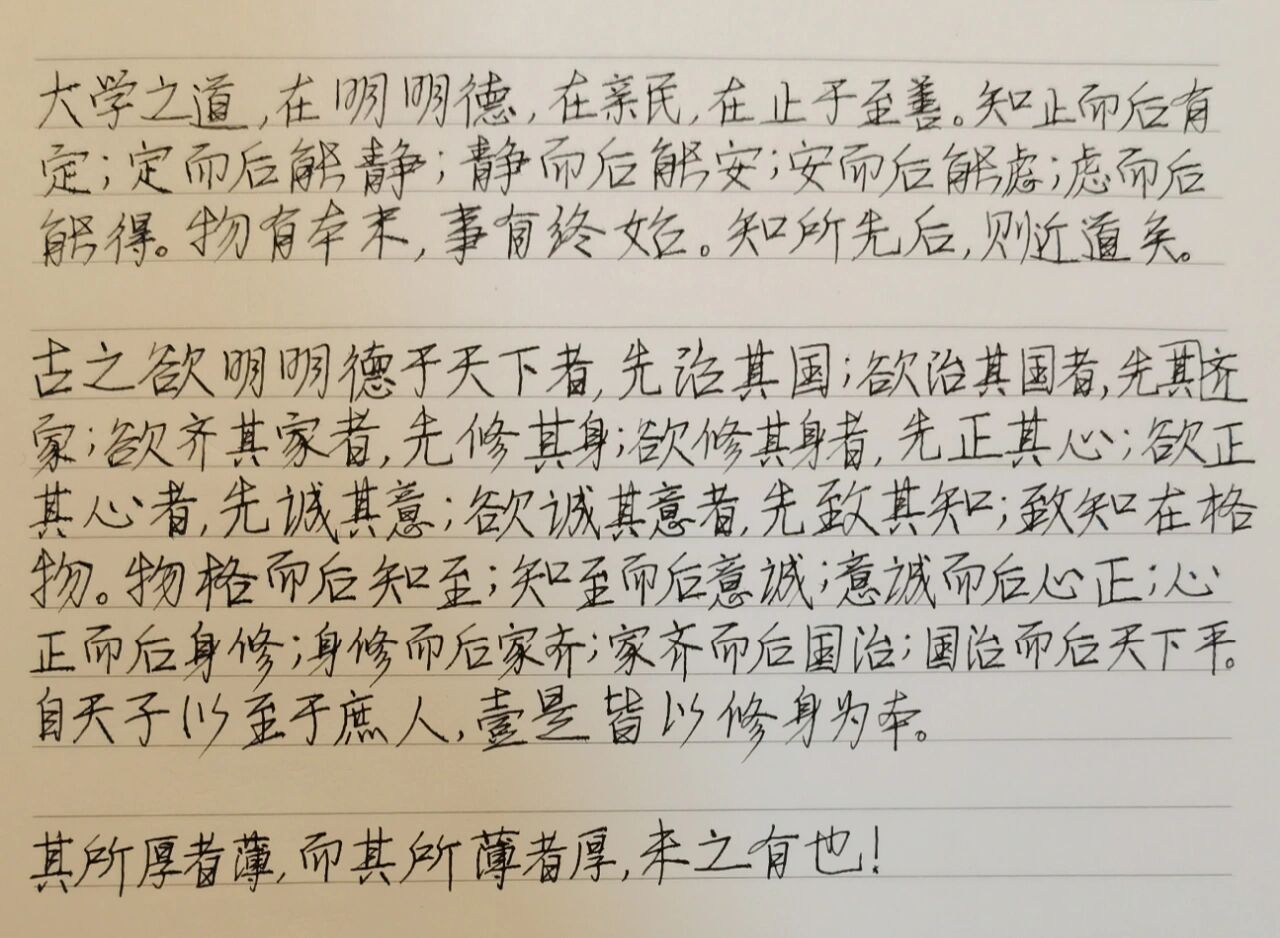 大学之道,在明明德,在亲民,在止于至善。知止而后有
定;定而后能静;静而后能安;安而后能虑;虑而后
能得。物有本末,事有终始。知所先后,则近道矣。
古之欲明明德于天下者,先治其国;欲治其国者,先其齐
家;欲齐其家者,先修其身;欲修其身者,先正其心;欲正
其心者,先诚其意;欲诚其意者,先致其知;致知在格
物。物格而后知至;知至而后意诚;意诚而后心正;心
正而后身修;身修而后家齐;家齐而后国治;国治而后天下平。
自天子以至于庶人,壹是皆以修身为本。
其所厚者薄,而其所薄者厚,未之有也!